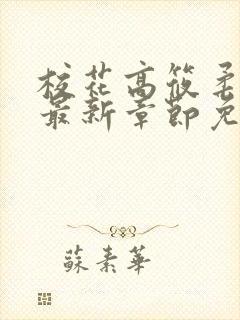 校花高筱柔
最新章節免
蘇素華